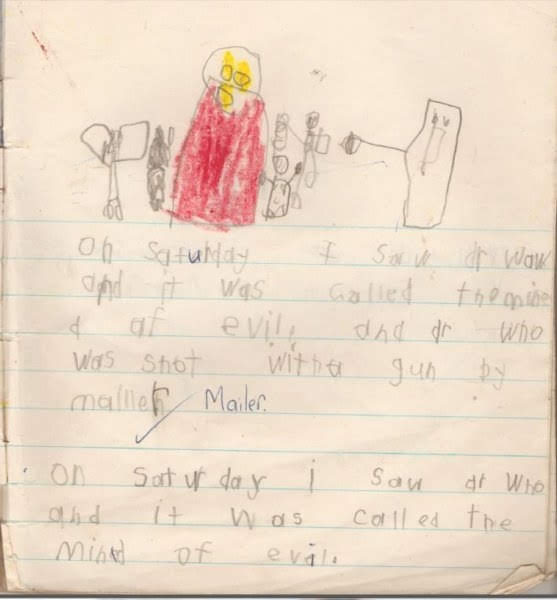 On saturday I saw dr waw
and it was called themine
d of evil. and dr who
was shot witha gun by
maller Mailer.
On saturday i saw dr who
and it was called the
mind of evil.